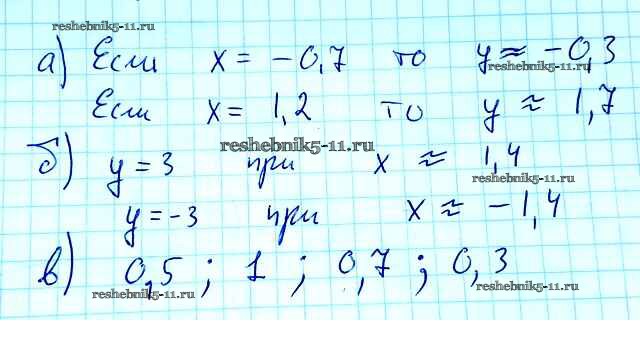 reshebnik5-11.ru
а) Если x = -0,7 то y ≈ -0,3
reshebnik5-11.ru
Если x = 1,2 то y ≈ 1,7
reshebnik5-11.ru
б) y = 3 при x ≈ 1,4
reshebnik5-11.ru
y = -3 при x ≈ -1,4
в) 0,5 ; 1 ; 0,7 ; 0,3
reshebnik5-11.ru reshebnik5-11.ru